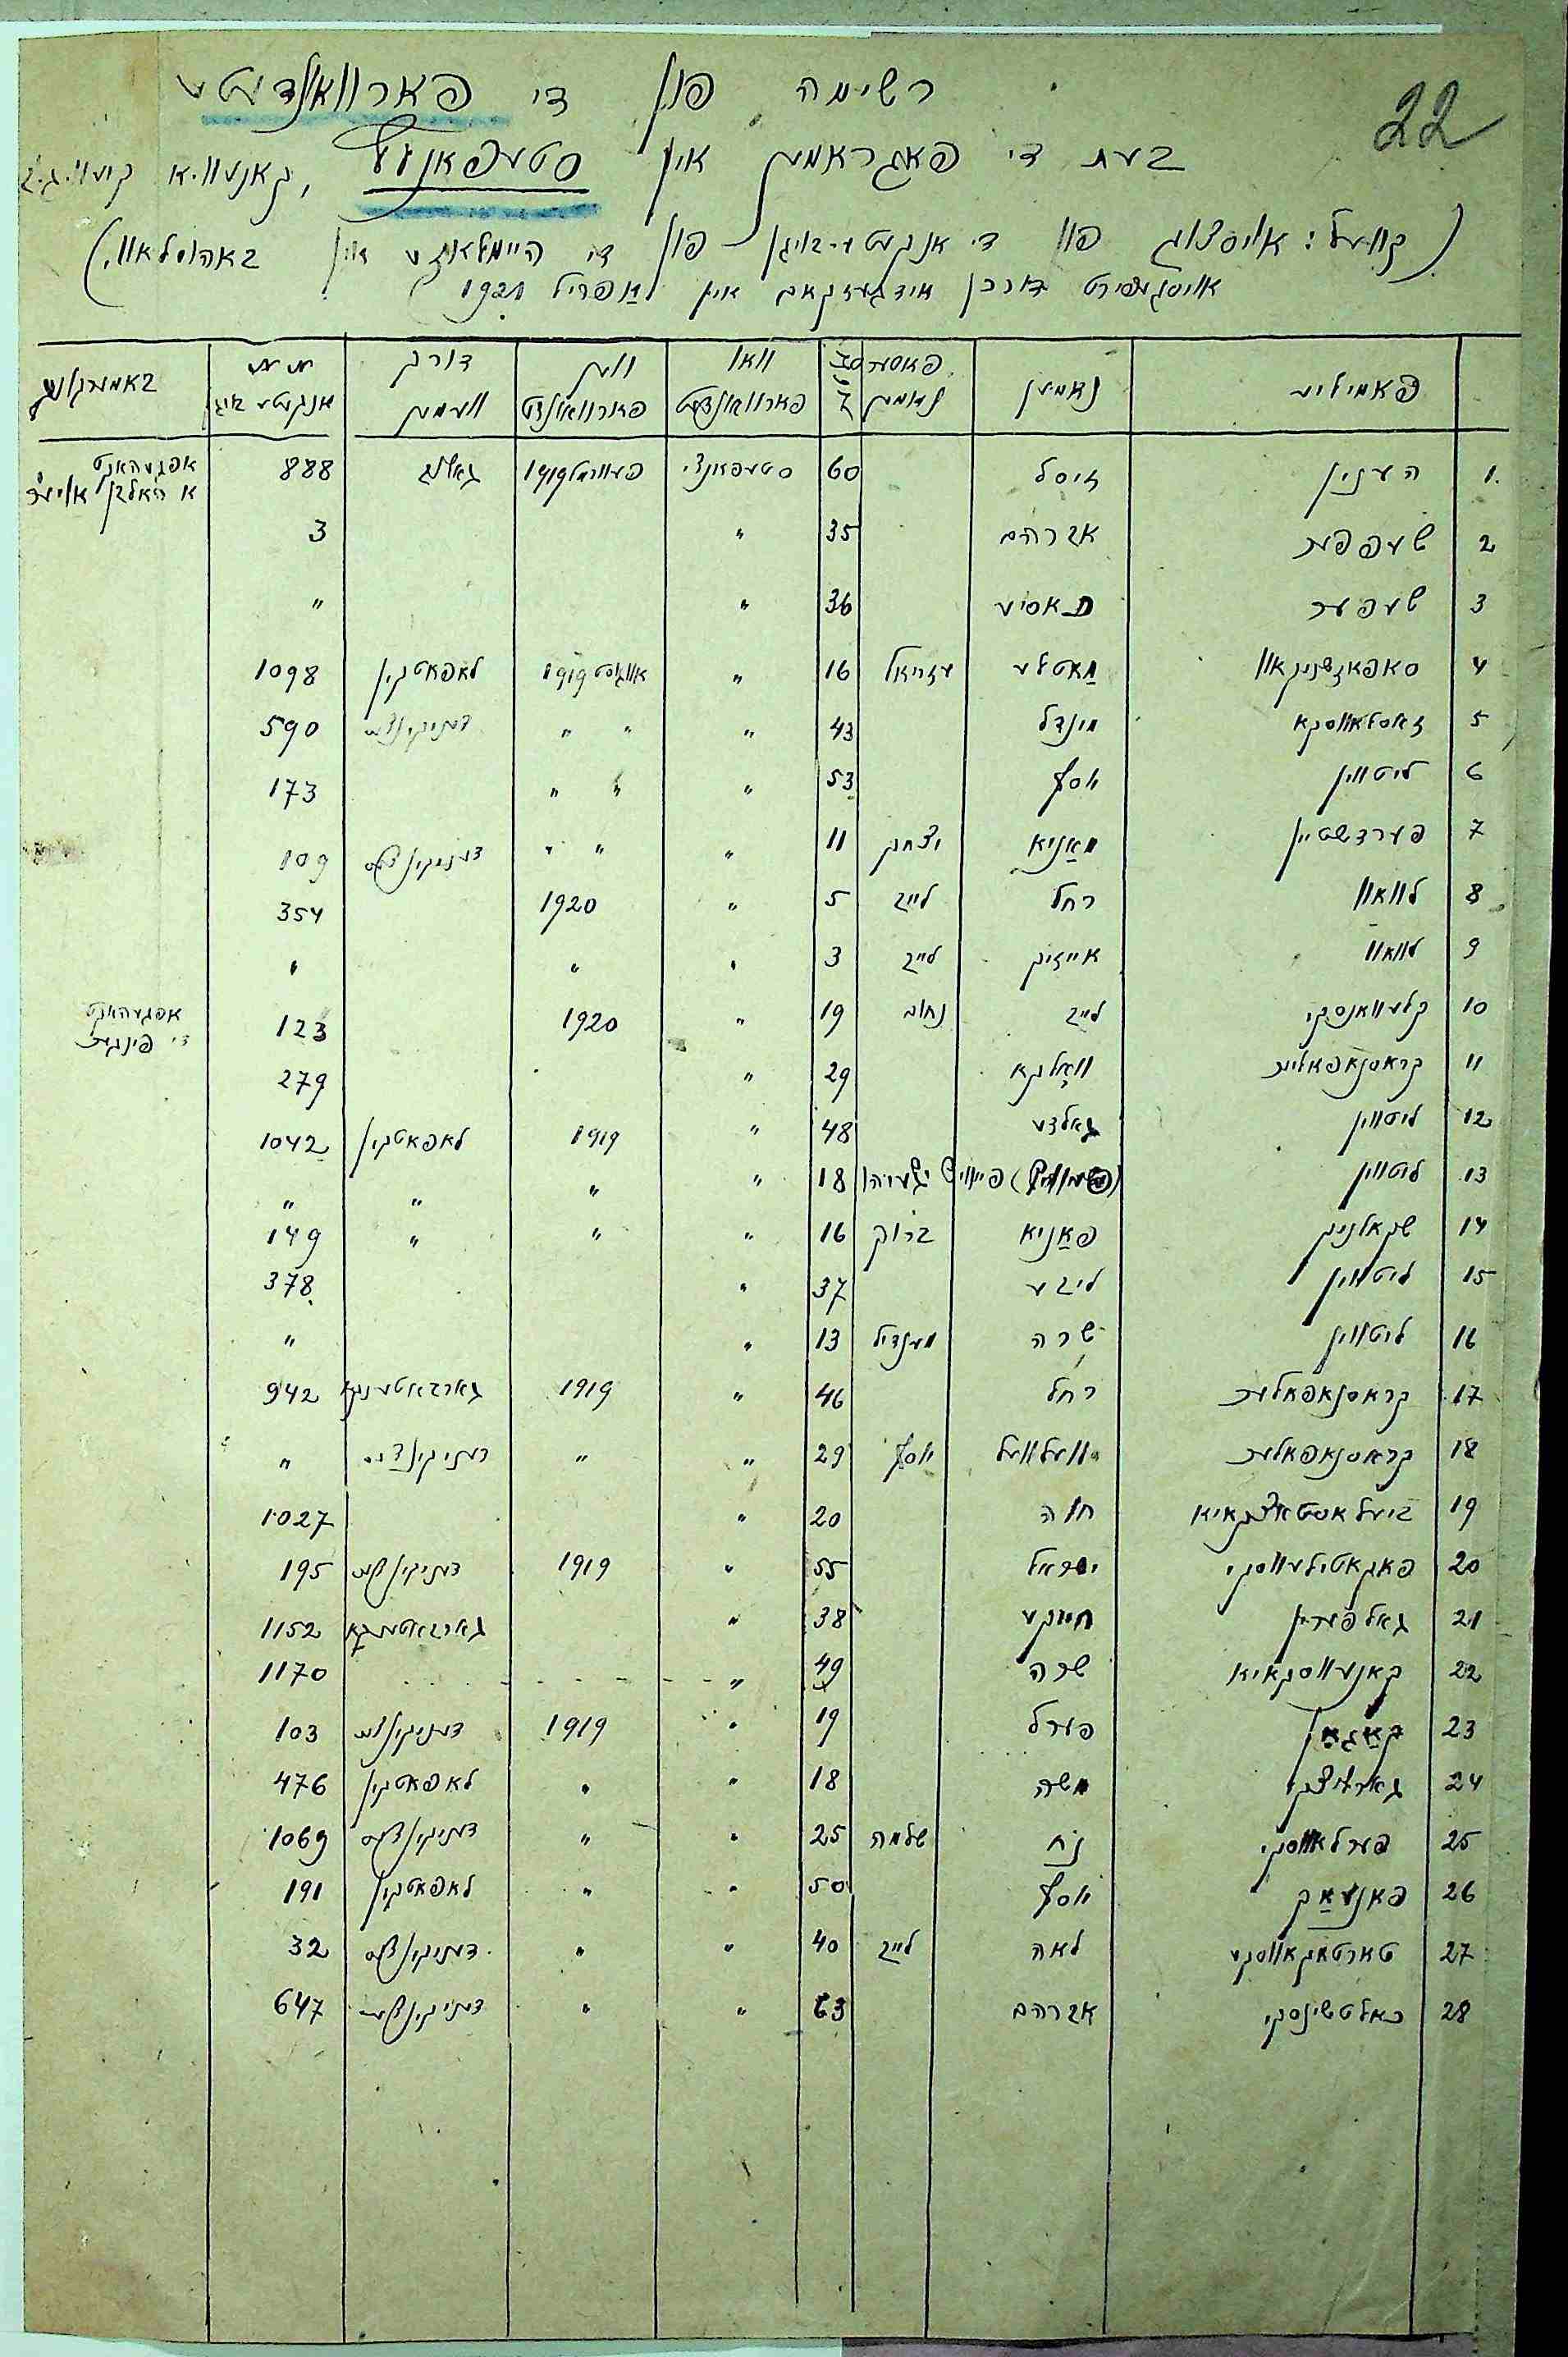 22
רשימה פון די פארוואונדעטע
בעת די פאגראמען אין סטעפאנעץ, קאנעוויא קיעוו.
(קוועל: אויסצוג פון די אנקעטע-בויגן פון די היימלאזע אין באהוסלאוו,
אויסגעפירט דורכן אידגעזקאם אין אַפריל 1921)
פאמיליע נאמען פאטערס נאמען וואו פארוואונדעט ווען פארוואונדעט דורך וועמען אנקעטע באמערקונג
1. זיסל 60 סטעפאנצי 1919 888 אפגעהאקט
2 אברהם 35 " 3
3 שעפער באסיע 36 " "
4 מאַטלע עזריאל 16 " אווגוסט 1919 לאפאטקין 1098
5 זאסלאווסקא מינדל 43 " " " דעניקינצעס 590
6 ליטווין יוסף 53 " " " 173
7 פערדשטיין מאַניא יצחק 11 " " " דעניקינצעס 109
8 לוואוו רחל לייב 5 " 1920 354
9 לוואוו אייזיק לייב 3 " " "
10 קלעוואנסקי לייב נחום 19 " 1920 123 אפגעהאקט די פינגער
11 קראסנאפאליער וועלקא 29 " 279
12 ליטווין גאלדע 48 " 1919 לאפאטקין 1042
13 ליטווין 18 " " " "
14 שקאלניק פאַניא ברוך 16 " " " 149
15 ליטווין ליבע 37 " 378
16 ליטווין שרה מענדיל 13 " "
17 קראסנאפאלער רחל 46 " 1919 גארבאטענקא 942
18 קראסנאפאלער וועלוועל יוסף 29 " " דעניקינצעס "
19 ביעלאסטאצקאיא חוה 20 " 1027
20 פאגאטילעווסקי ישראל 55 " 1919 דעניקינצעס 195
21 גאלפערין חייקע 38 " גארבאטענקא 1152
22 קאנעווסקאיא שרה 49 " 1170
23 קאַגאַן פערל 19 " 1919 דעניקינצעס 103
24 משה 18 " " לאפאטקין 476
25 פערלאווסקי נח שלמה 25 " " דעניקינצעס 1069
26 יוסף 50 " " לאפאטקין 191
27 טארטאקאווסקי לאה לייב 40 " " דעניקינצעס 32
28 כאלטשינסקי אברהם 63 " " דעניקינצעס 647